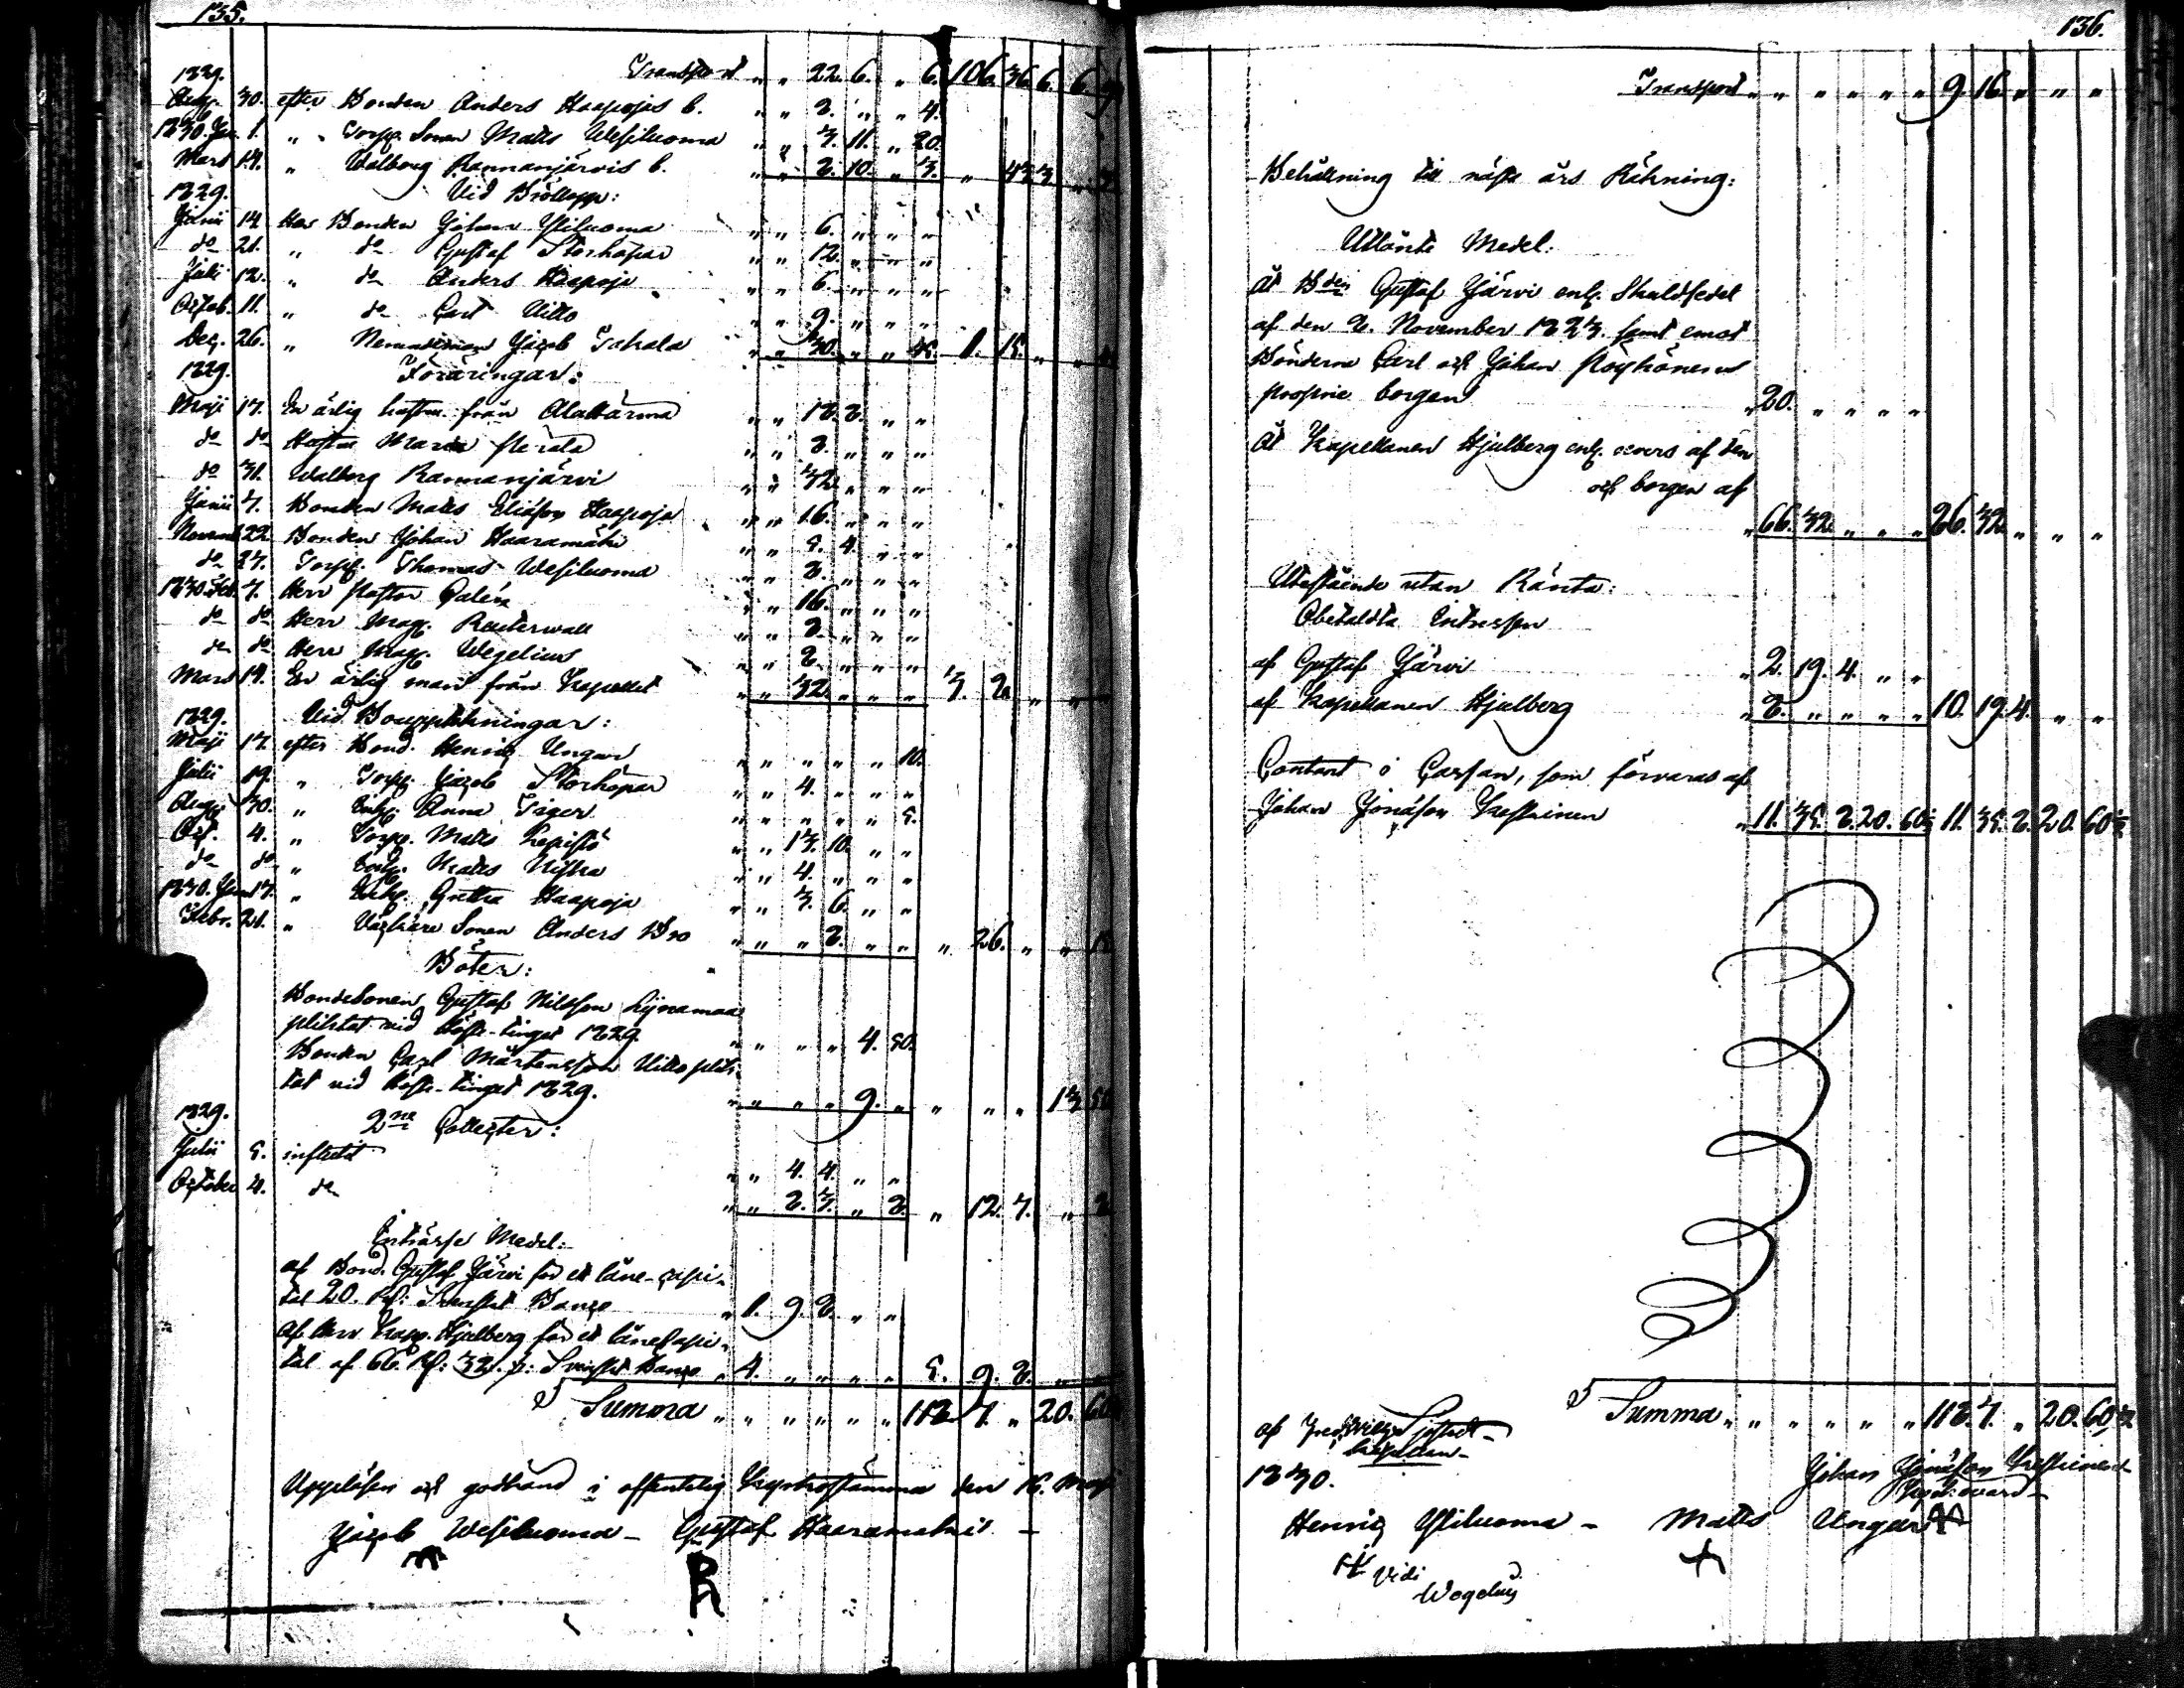 135.
Transport " " 22. 6. " 6. 106. 36. 6. 6.
1829.
Aug. 30. efter Bonden Anders Haapojas b. " " 8. " " 4.
1830. Jan. 1. " " Torp. Sonen Matts Wesiluoma " " 3. 11. " 20.
Mars 14. " Walborg Rannanjärvis b. " " 8. 10. " 3. " 43 3 "
1829. Vid Bröllopp:
Junii 14 Hos Bonden Johan Yliluoma " " 6. " " "
do 21. " do Gustaf Storhåpar " " 12. " " "
Julii 12. " do Anders Haapoja " " 6. " " "
Octob. 11. " do Carl Uitto " " 9. " " "
Dec. 26. " Nemndeman Jacob Takala " " 30. " " 45. 1. 15. " "
1829. Föräringar:
Maji 17. En ärlig hustru från Alahärmä " " 18. 8. " "
do do Hustru Maria " " 8. " " "
do 31. Walborg Rannanjärvi " " 32. " " "
Junii 7. Bonden Matts Eliäson Haapoja " " 16. " " "
Novemb 22. Bonden Johan Haaramäki " " 5. 4. " "
do 27. Torp. Thomas Wesiluoma " " 8. " " "
1830. Feb. 7. Herr Pastor Calén " " 16. " " "
do do Herr Mag. Reuterwall " " 8. " " "
do do Herr Mag. Wegelius " " 8. " " "
Mars 14. En ärlig man från Kapellet " " 32. " " " 3. 8. " "
1829. Vid Bouppteckningar:
Maji 17. efter Bond. Henric Ungar " " " " " 10.
Julii 19. " Torp. Jacob Storhåpar " " 4. " " "
Aug. 30. " Enk. Anna Tiger " " " " " 5.
Oct. 4. " Torp. Matts Kepistö " " 13. 10. " "
do do " Torp. Matts Niska " " 4. " " "
1830. Janu 17. " Enk. Gretha Haapoja " " 3. 6. " "
Febr. 21. " Sonen Anders Bro " " " 8. " " " 26. " "
Böter:
Bondesonen Gustaf Nilsson Lynamaa
pliktat vid Höste-tinget 1829. " " " " 4. 50.
Bonden Carl Mårtensson Uitto plik-
tat vid Höste-tinget 1829. " " " " 9. " " " " 13 50
1829. 2ne Collecter:
Julii 5. influtit " " 4. 4. " "
October 4. do " " 8. 3. " 8. " 12. 7. "
Inträsse Medel:
af Bond. Gustaf Järvi för et låne-capi-
tal 20. Rd: Svenskt Banco " 1. 9. 8. " "
af Herr Kapp. Hjulberg för et lånecapi-
tal af 66. Rd: 32. s: Svenskt Banco " 4. " " " " 5. 9. 8. "
Summa " " " " " " 118 7. " 20. 60
Uppläsen och godkänd i offentelig Kyrkostämma den 16. Maji
Jacob Wesiluoma - Gustaf Haaramäki -
R
136.
Transport " " " " " " 9. 16. " " "
Behållning til näste års Räkning:
Utlänte Medel.
Åt Bden Gustaf Järvi enl. Skuldsedel
af den 8. November 1823. samt emot
Bönderne Carl och Johan Pöyhönens
proprie borgen " 20. " " " "
Åt Kapellanen Hjulberg enl. revers af den
och borgen af
" 66. 32. " " " " 86. 32. " " "
Utestående utan Ränta:
Obetaldta Intressen
af Gustaf Järvi " 2. 19. 4. " "
af Kapellanen Hjulberg " 8. " " " " 10. 19. 4. " "
Contant i Cassan, som förvaras af
Johan Jonäson Koskinen " 11. 35. 8. 20. 60½ 11. 35. 8. 20. 60½
Summa " " " " " " 118. 7. " 20. 60½
1830.
Johan Jonäson Koskinen
Henric Yliluoma - Matts Ungar
Vidi
Wegelius